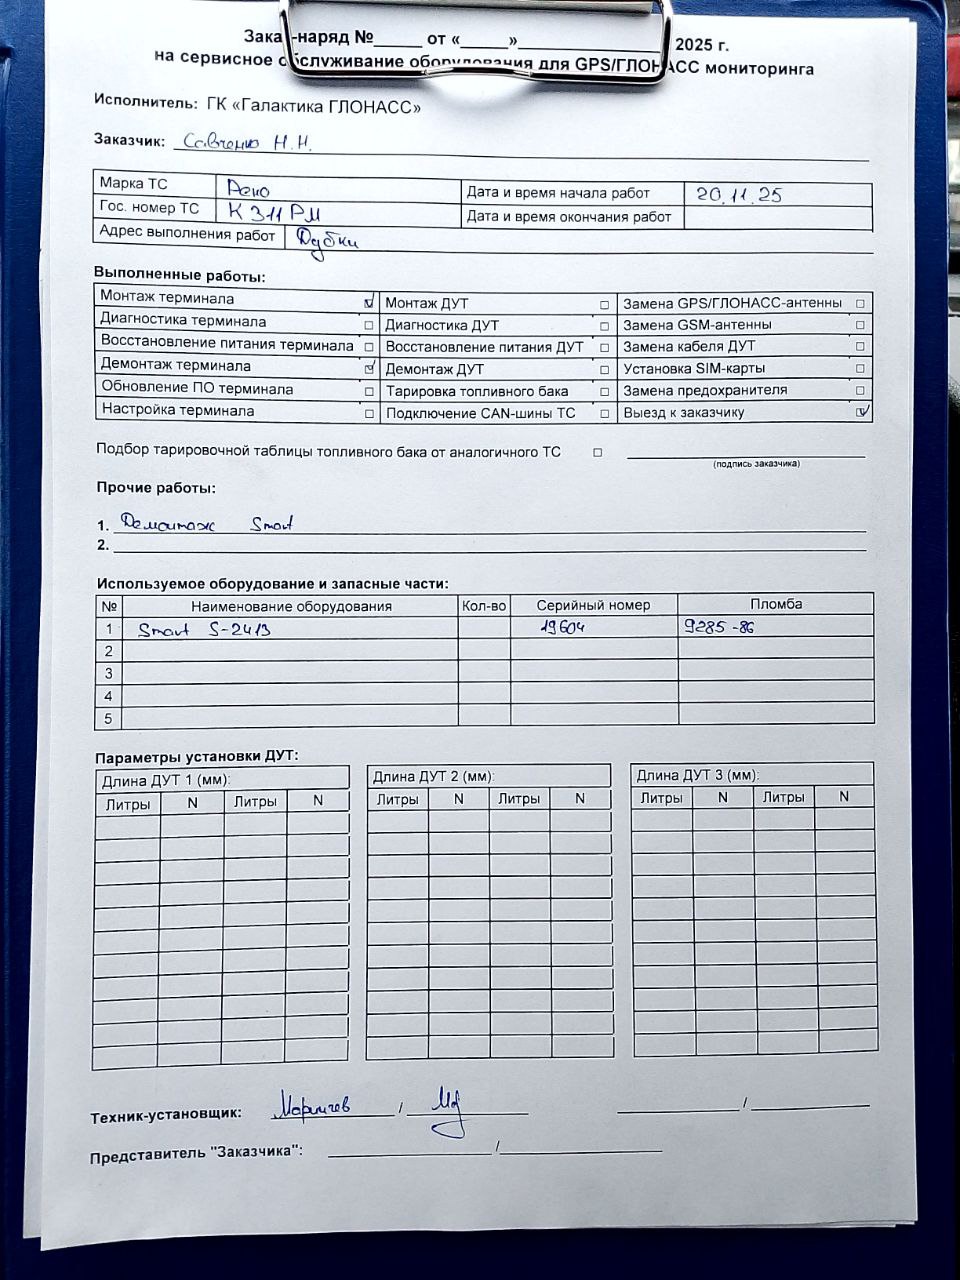 Заказ-наряд №_____ от «_____»________________ 2025 г.
на сервисное обслуживание оборудования для GPS/ГЛОНАСС мониторинга
Исполнитель: ГК «Галактика ГЛОНАСС»
Заказчик: Савченко Н.Н.
Марка ТС Рено Дата и время начала работ 20.11.25
Гос. номер ТС К 311 РМ Дата и время окончания работ
Адрес выполнения работ Дубки
Выполненные работы:
Монтаж терминала ☑ Монтаж ДУТ ☐ Замена GPS/ГЛОНАСС-антенны ☐
Диагностика терминала ☐ Диагностика ДУТ ☐ Замена GSM-антенны ☐
Восстановление питания терминала ☐ Восстановление питания ДУТ ☐ Замена кабеля ДУТ ☐
Демонтаж терминала ☑ Демонтаж ДУТ ☐ Установка SIM-карты ☐
Обновление ПО терминала ☐ Тарировка топливного бака ☐ Замена предохранителя ☐
Настройка терминала ☐ Подключение CAN-шины ТС ☐ Выезд к заказчику ☑
Подбор тарировочной таблицы топливного бака от аналогичного ТС ☐
(подпись заказчика)
Прочие работы:
1. Демонтаж Smart
2.
Используемое оборудование и запасные части:
№ Наименование оборудования Кол-во Серийный номер Пломба
1 Smart S-2413 19604 9285-86
2
3
4
5
Параметры установки ДУТ:
Длина ДУТ 1 (мм): Длина ДУТ 2 (мм): Длина ДУТ 3 (мм):
Литры N Литры N Литры N Литры N Литры N Литры N
Техник-установщик: / /
Представитель "Заказчика": /